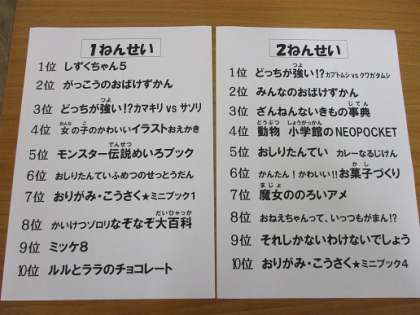 1ねんせい
1位 しずくちゃん5
2位 がっこうのおばけずかん
3位 どっちが強い!?カマキリvsサソリ
4位 女の子のかわいいイラストおえかき
5位 モンスター伝説めいろブック
6位 おしりたんていふめつのせっとうだん
7位 おりがみ・こうさく★ミニブック1
8位 かいけつゾロリなぞなぞ大百科
9位 ミッケ8
10位 ルルとララのチョコレート
2ねんせい
1位 どっちが強い!?カブトムシvsクワガタムシ
2位 みんなのおばけずかん
3位 ざんねんないきもの事典
4位 動物 小学館のNEOPOCKET
5位 おしりたんてい カレーなるじけん
6位 かんたん!かわいい!!お菓子づくり
7位 魔女ののろいアメ
8位 おねえちゃんって、いっつもがまん!?
9位 それしかないわけないでしょう
10位 おりがみ・こうさく★ミニブック4